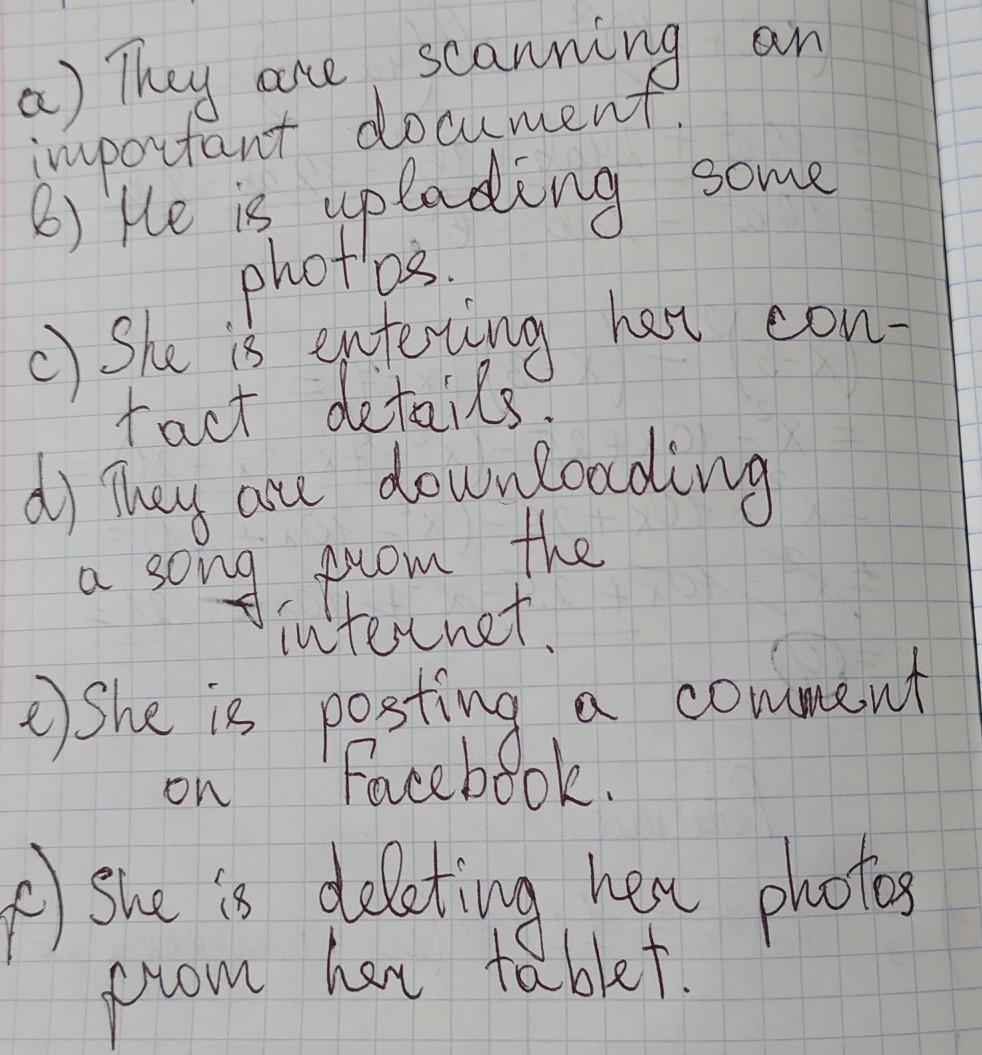 a) They are scanning an
important document.
b) He is uplading some
photos.
c) She is entering her con-
tact details.
d) They are downloading
a song from the
internet.
e) She is posting a comment
on Facebook.
f) She is deleting her photos
from her tablet.